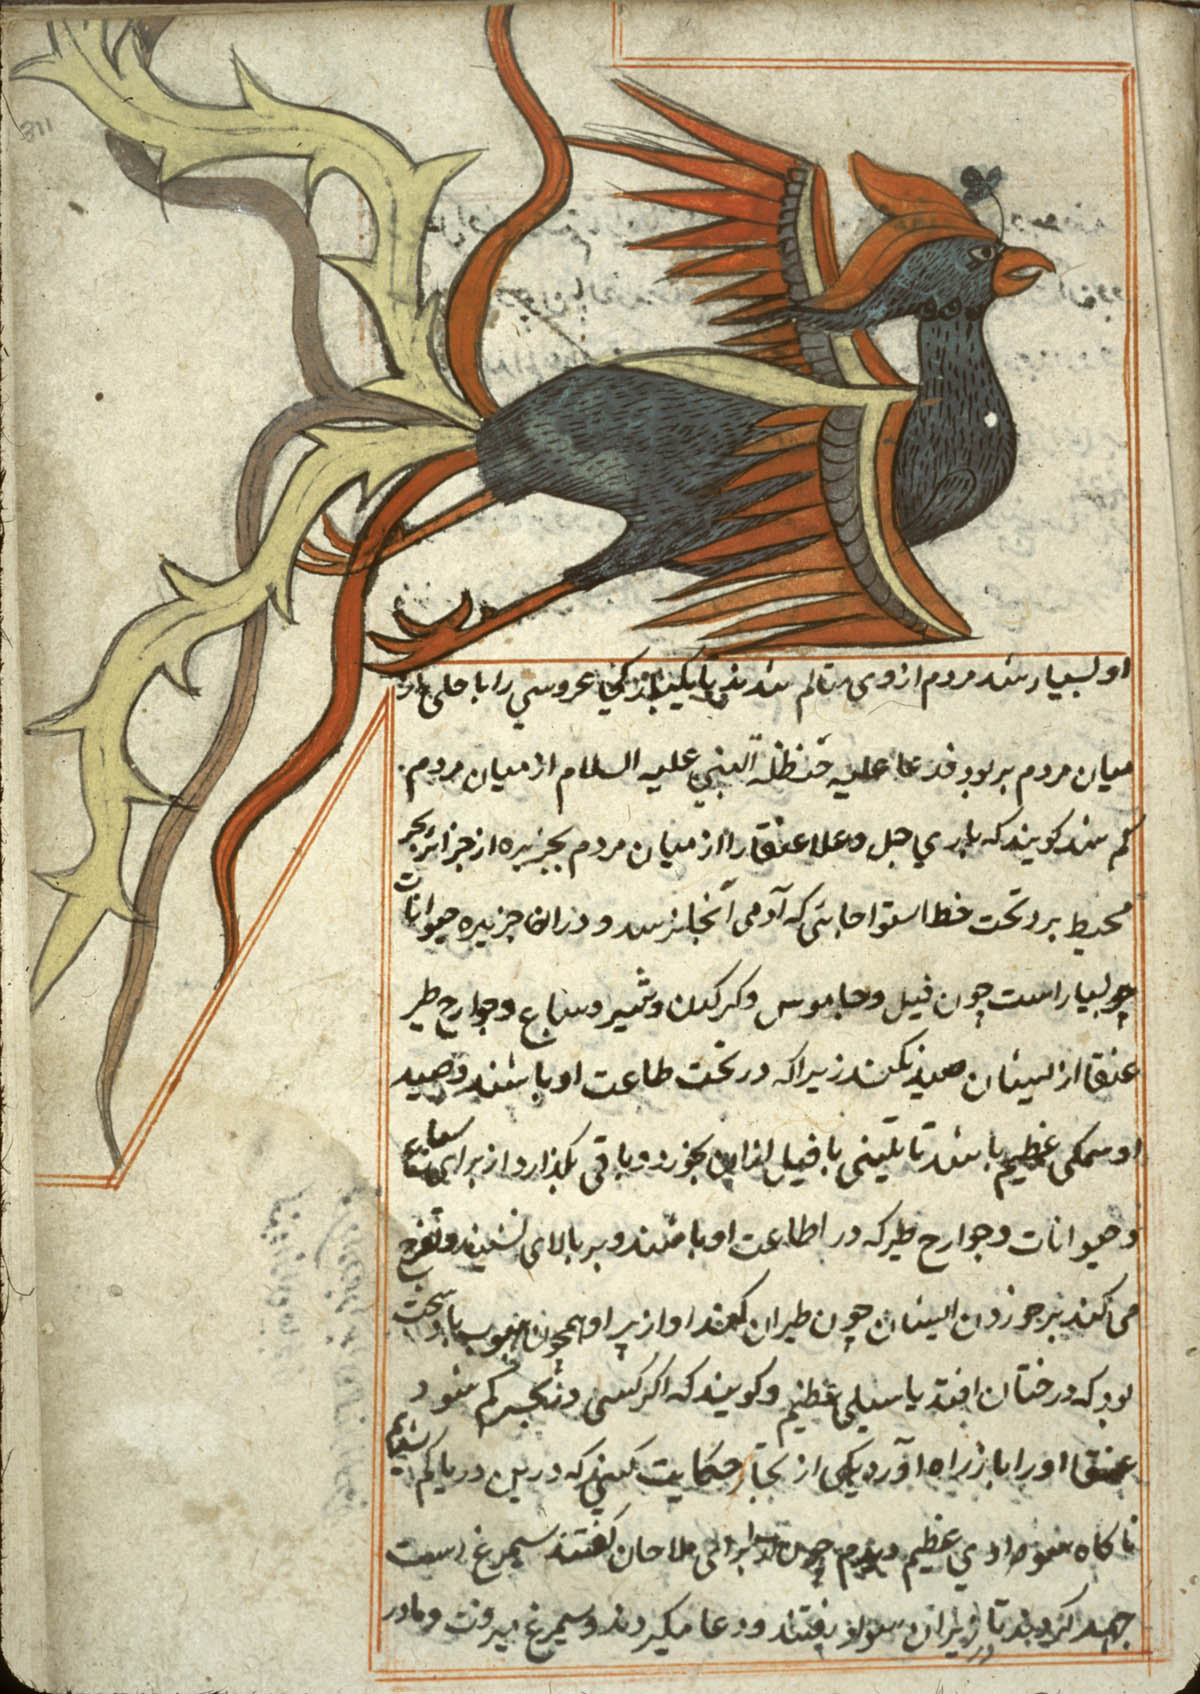 311
او بسیار شد مردم ازوی متالم شدند تا یکبار کی عروسی را با حلی از
میان مردم بربود فدعا علیه حنظلة النبی علیه السلام از میان مردم
کم شد کویند که باری جل وعلا عنقا را از میان مردم بجزیره از جزائر بحر
محیط برد تحت خط استوا جایی که آدمی آنجا نرسد و دران جزیره حیوانات
بسیار است چون فیل وجاموس وکرکدن وشیر وسباع وجوارح طیر
عنقا از ایشان صید نکند زیرا که در تحت طاعت او باشند وصید
او سمکی عظیم باشد تا تنینی یا فیل ازان بخورد وباقی بکذارد از برای سباع
وحیوانات وجوارح طیر که در اطاعت او باشند وبر بالای نشیند وتفرج
می کند بر خوردن ایشان چون طیران کند اواز پر او همچون باد سخت
بود که درختان افتد یا سیلی عظیم وکویند که اکر کسی در بحر کم شود
عنقا اورا باز راه آورد یکی از تجار حکایت کند که درین دریا کم شدیم
ناکاه سوادی عظیم دیدم ملاحان کفتند سیمرغ است
در زیر ان بیفتند ودعا میکردند وسیمرغ میرفت وما در